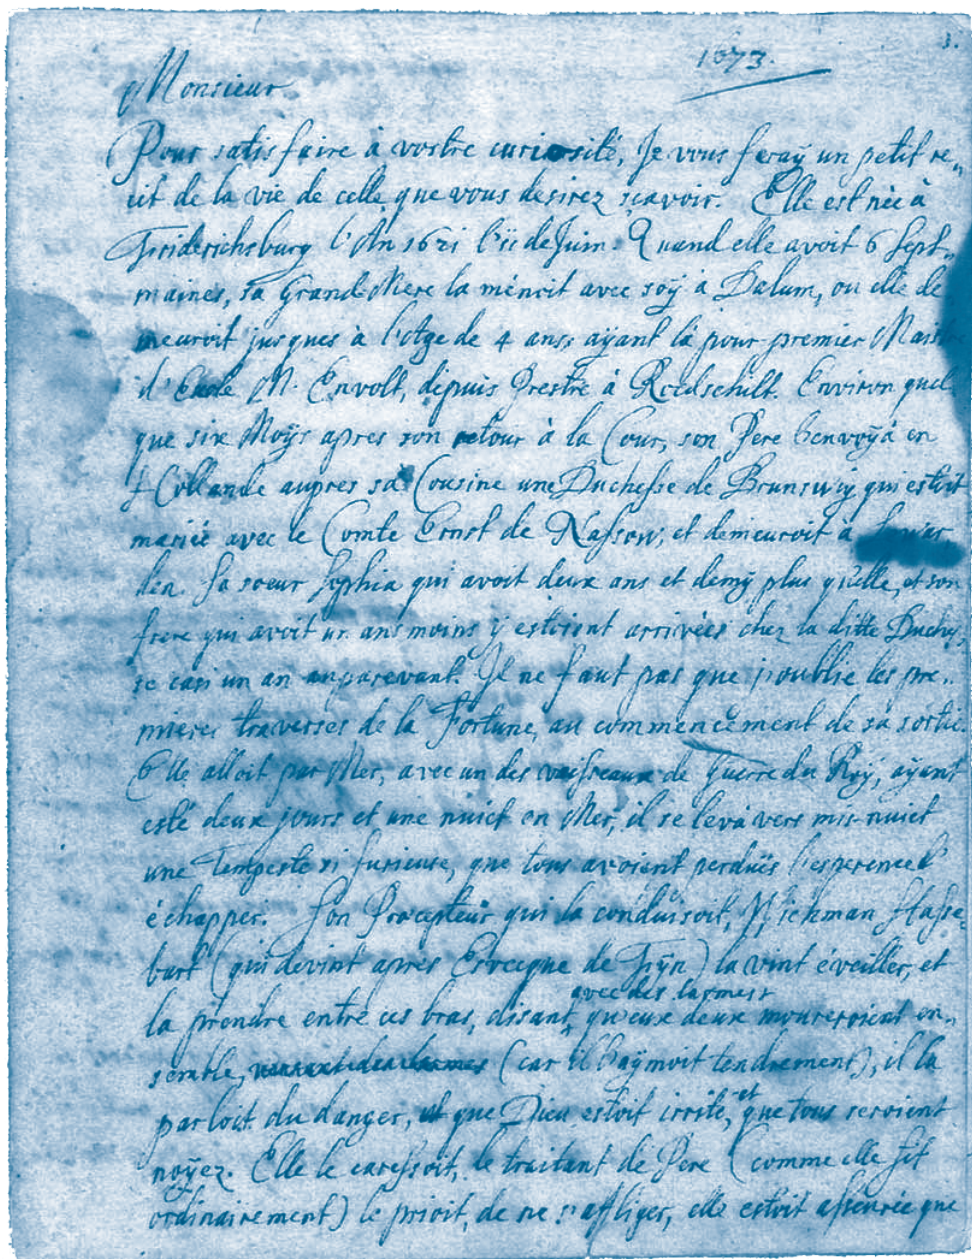 3.
1673.
Monsieur
Pour satisfaire à vostre curiosité, Je vous feraÿ un petit re„
cit de la vie de celle que vous desirez sçavoir. Elle est née à
Friderichsburg l'An 1621 l'11 de Juin. Quand elle avoit 6 Sept„
maines, sa Grand Mere la ménoit avec soÿ à Dalum, ou elle de
meuroit jusques à l'Age de 4 ans, aÿant là pour premier Maistre
d'Ecole M. Envolt, depuis Prestre à Roedschilt. Environ quel
que six Moÿs apres son retour à la Cour, son Pere l'envoÿa en
Hollande aupres sa Cousine une Duchesse de Brunswig qui estoit
mariée avec le Comte Ernst de Nassow, et demeuroit à
den. Sa soeur Sophia qui avoit deux ans et demÿ plus qu'elle, et son
frere qui avoit un ans moins ÿ estoient arrivées chez la ditte Duches„
se casi un an auparevant. Il ne faut pas que j'oublie les pre„
mieres traverses de la Fortune, au commencement de sa sortie.
Elle alloit par Mer, avec un des vaisseaux de Guerre du Roÿ, aÿant
esté deux jours et une nuict en Mer, il se leva vers mis-nuict
une Tempeste si furieuse, que tous avoient perduës l'esperence d'
échapper. Son Precepteur qui la conduisoit, Wichman Hasse„
bart (qui devint apres Evecque de Fÿn) la vint éveiller, et
avec des larmes
la prendre entre ces bras, disant, qu'eux deux moureroient en„
semble, (car il l'aÿmoit tendrement), il la
parloit du danger, que Dieu estoit irrité, et que tous seroient
noÿez. Elle le caressoit, le traitant de Pere (comme elle fit
ordinairement) le prioit, de ne s'affliger, elle estoit assurée que